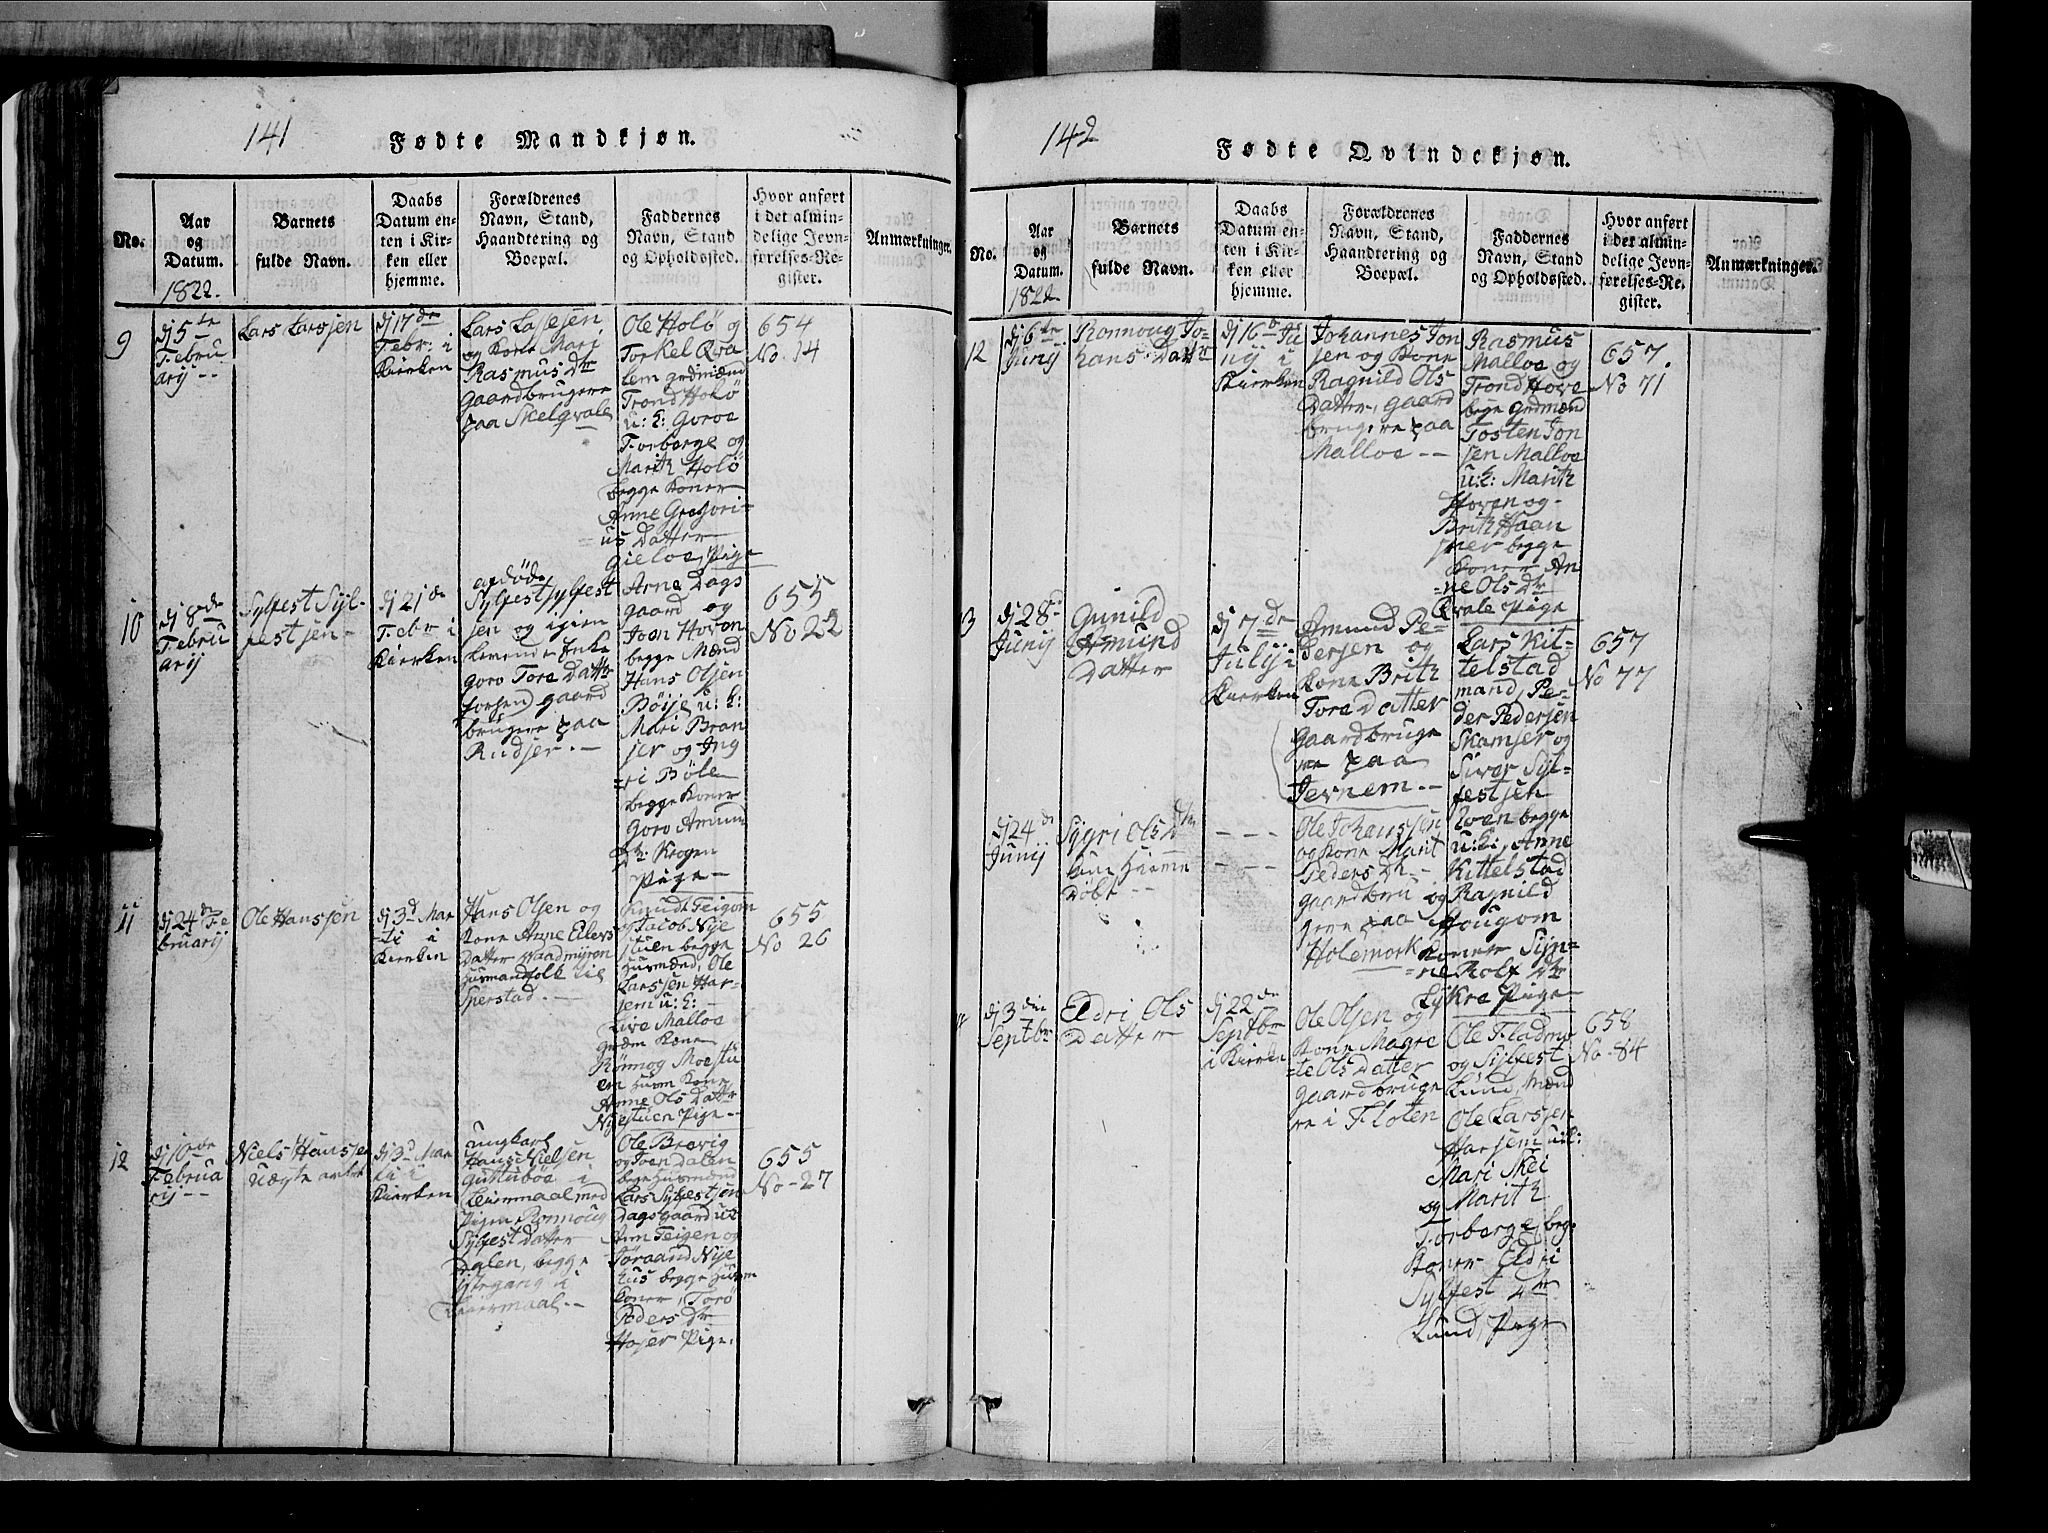 141
Fødte Mandkjøn.
No.
Aar
og
Datum.
1822.
Barnets
fulde Navn.
Daabs
Datum en-
ten i Kir-
ken eller
hjemme.
Forældrenes
Navn, Stand,
Haandtering og
Boepæl.
Faddernes
Navn, Stand
og Opholdssted.
Hvor anført
i det almin-
delige Jevn-
førelses-Re-
gister.
Anmærkninger.
9
dj 5te
Febru
arij --
Lars Larssen
dj 17de
Febr: i
Kierken
Lars Lassesen
og Kone Mari
Rasmus Dtr
Gaardbrugere
paa Skelqvale
Ole Holö og
Torkel Qva
lem grdmænd
Trond Holö
u: k: Goroe
Torberge og
Marith Holö
begge Koner
Anne Gregori-
us Datter
Gieloe, Pige
654
No. 14
10
dj 8de
Febru
arij
Sylfest Syl-
festsen -
dj 21de
Febr i
Kierken
afdöde
Sylfest Sylfest
sen og igien
levende Enke
Goro Tore Datter
gaard
brugere paa
Rudsjer. -
Arne Dags
gaard og
Joen Hoven
begge Mænd
Hans Olsen
Böije u: k:
Mari Bran
jer og Ing
=ri Böle
begge Koner
Goro Amund
Dtr. Krogen
Pige -
655
No 22
11
dj 24de Fe
bruarij
Ole Hanssen
dj 3d Mar
tii i
Kierken
Hans Olsen og
Kone Anne Eilers
Datter Vaadmyren
Husmandfolk til
Sperstad. -
Knud Teigen
og Jacob Nye
stuen begge
Husmænd, Ole
Larssen Har-
sem u: k: -
Live Malloe
grdm Kone
Rönnog Moestu
en Husm Kone
Anne Ols Datter
Nyestuen Pige --
655
No 26
12
dj 10de
Februa
rij --
Niels Hanssen
Uægte
dj 3d Mar
tii i
Kierken
ungkarl
Hans Nielsen
i
Leiermaal med
Pigen Ronnoug
Sylfest Datter
Dalen, begge
gang i
Leiermaal. -
Ole Brevig
og Joen Dalen
begge Husmænd
Lars Sylfestsen
Dagsgaard uk
Ann Teigen og
Jöraand Nye
hus begge Husm
Koner, Torö
Peders Dtr
Hojer Pige.
655
No - 27
142
Fødte Qvindekjøn.
No.
Aar
og
Datum.
1822.
Barnets
fulde Navn.
Daabs
Datum en-
ten i Kir-
ken eller
hjemme.
Forældrenes
Navn, Stand,
Haandtering og
Boepæl.
Faddernes
Navn, Stand
og Opholdssted.
Hvor anført
i det almin-
delige Jevn-
førelses-Re-
gister.
Anmærkninger.
12
dj 6te
Junij
Ronnoug Jo-
hans Datter
dj 16de Ju
nij i
Kierken
Johannes Jon
sen og Kone
Ragnild Ols
Datter, gaard
brugere paa
Malloe --
Rasmus
Malloe og
Trond Hove
bege grdmænd
Tosten Jon
sen Malloe
u: k: Marith
Hoven og -
Brith Haan
sner begge
Koner An
=ne Ols Dtr
Qvale Pige
657.
No 71
13
dj 28d
Junij
Gunild
Amund
Datter
dj 7de
Julij i
Kierken
Amund Pe-
dersen og
Kone Brith
Tore Datter
Gaardbruge
re paa
Jevnem. -
Lars Kit-
telstad
mand, Pe-
der Pedersen
Skamser og
Siver Syl-
festsen
Loen begge
u: k:, Anne
Kittelstad
og Ragnild
Hougom
Koner Syn-
=ne Rolf Dtr
Lykre Pige
657
No 77
dj 24de
Junij
Sygri Ols Dtr
kun Hiemme
Döbt --
- - -
- - -
Ole Johanssen
og Kone Marit
Peders Dtr -
gaardbru
gere paa
Holemork
dj 3die
Septbr
Eldri Ols
Datter
dj 22de
Septbr
i Kierken
Ole Olsen og
Kone Magre
=te Ols Datter
gaardbruge
re i Floten
Ole Fladmo
og Sylfest
Lund, Mænd
Ole Larssen
Harsem u: k:
Mari Skei
og Marith
Torberge beg-
Koner Eldri
Sylfest Dtr
Lund, Pige
658
No - 84